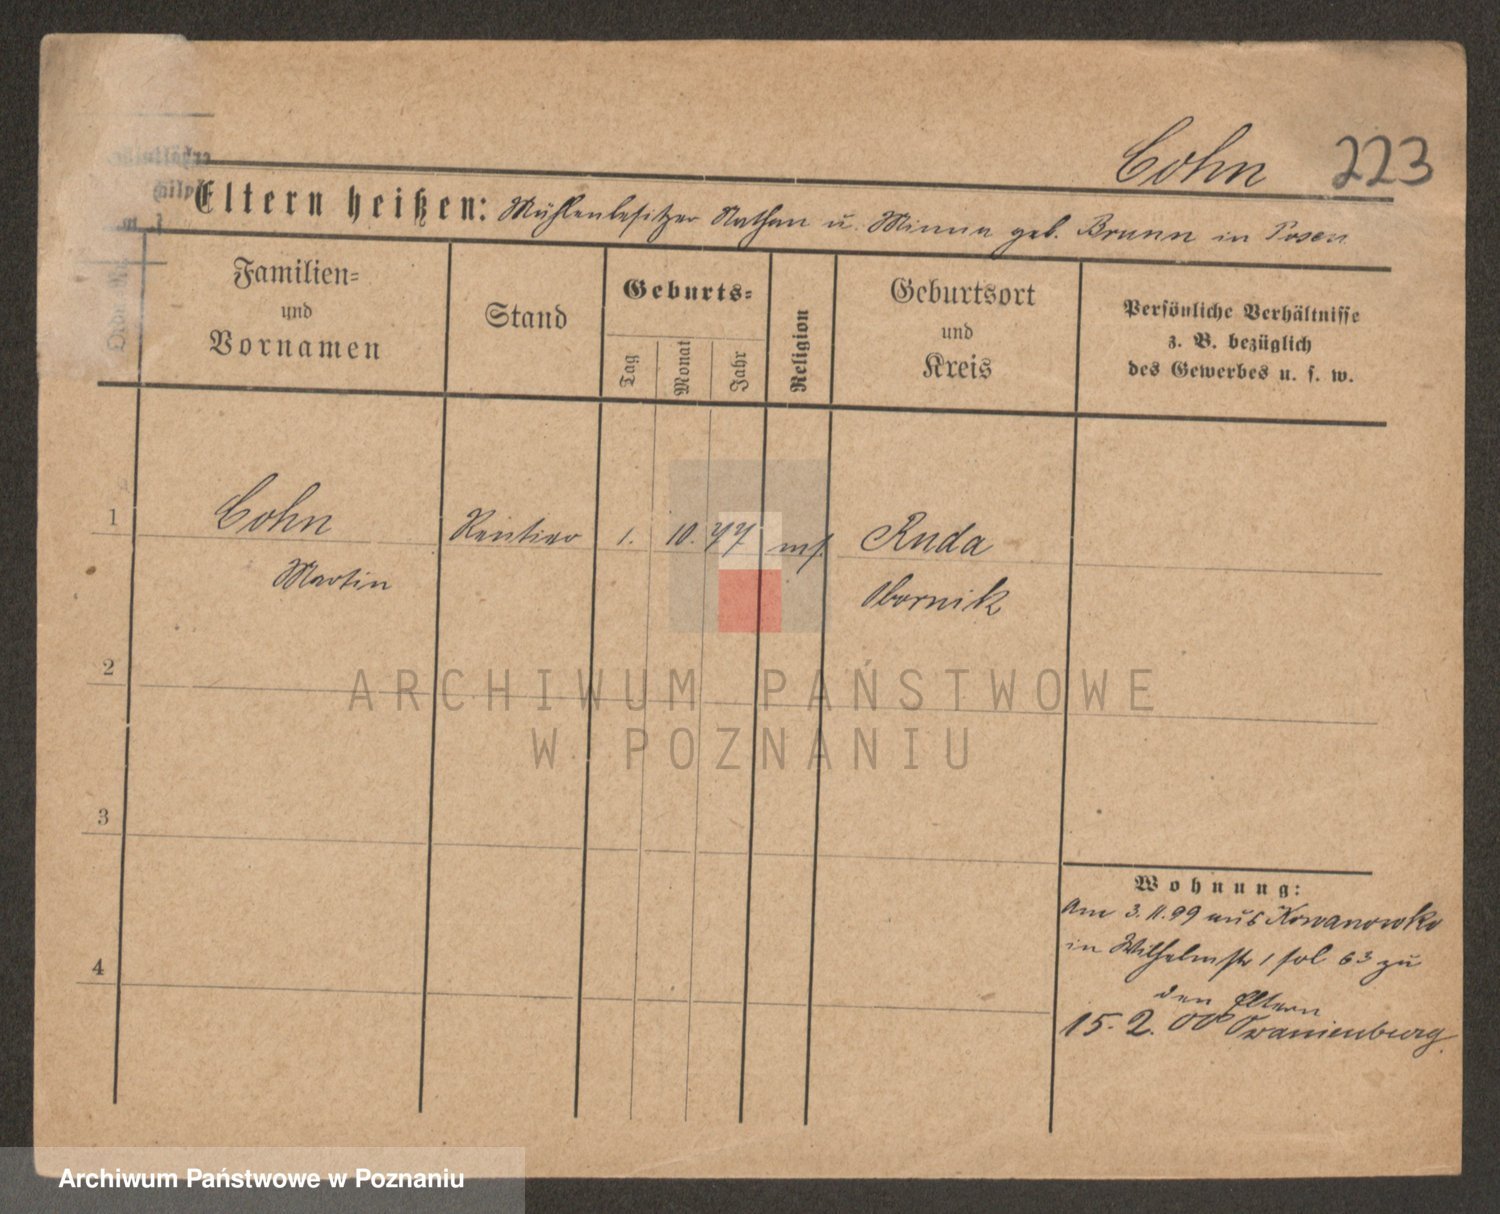 Cohn 223
Eltern heißen: Mühlenbesitzer Nathan u. Minna geb. Brunn in Posen
Familien=
und
Vornamen
Stand
Geburts=
Tag
Monat
Jahr
Religion
Geburtsort
und
Kreis
Persönliche Verhältnisse
z. B. bezüglich
des Gewerbes u. s. w.
1 Cohn Rentier 1. 10. 77 mf. Ruda
Martin Obornik
2
3
4
Wohnung:
Am 3.11.99 aus Kowanowko
in Wilhelmstr 1 fol 63 zu
den Eltern
15. 2. 00 Oranienburg.
ARCHIWUM PAŃSTWOWE
W POZNANIU
Archiwum Państwowe w Poznaniu